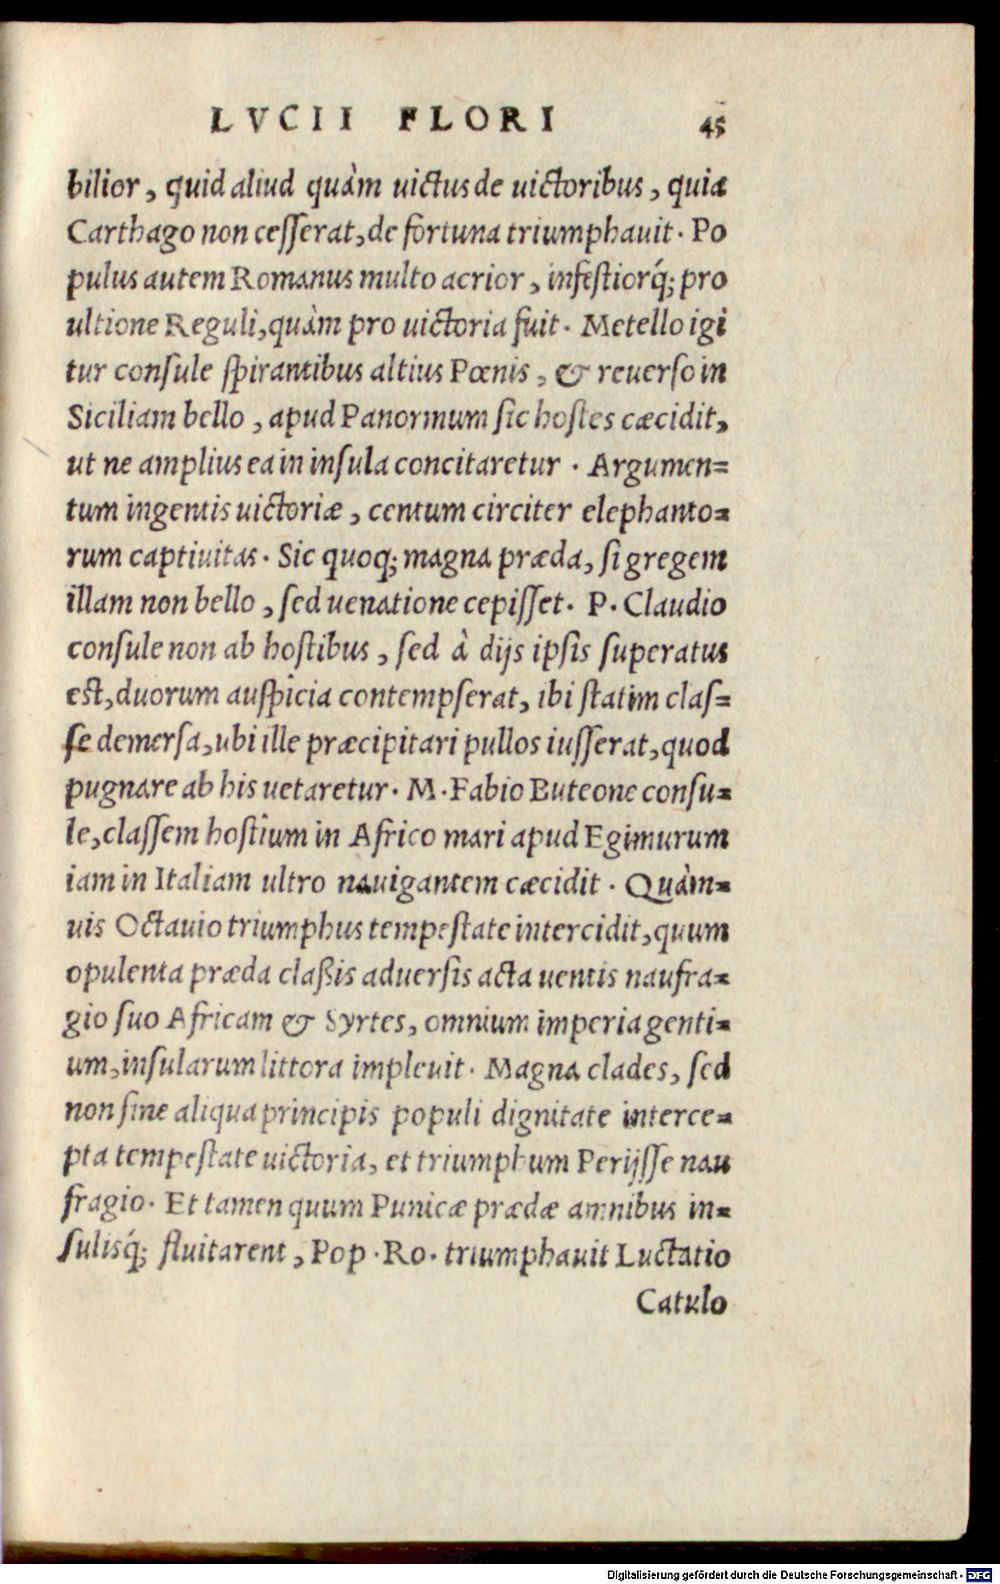 LVCII FLORI 45
bilior, quid aliud quàm uictus de uictoribus, quia
Carthago non cesserat, de fortuna triumphauit. Po
pulus autem Romanus multo acrior, infestiorq́; pro
ultione Reguli, quàm pro uictoria fuit. Metello igi
tur consule spirantibus altius Pœnis, & reuerso in
Siciliam bello, apud Panormum sic hostes cæcidit,
ut ne amplius ea in insula concitaretur. Argumen=
tum ingentis uictoriæ, centum circiter elephanto=
rum captiuitas. Sic quoq; magna præda, si gregem
illam non bello, sed uenatione cepisset. P. Claudio
consule non ab hostibus, sed à dijs ipsis superatus
est, duorum auspicia contempserat, ibi statim clas=
se demersa, ubi ille præcipitari pullos iusserat, quod
pugnare ab his uetaretur. M. Fabio Buteone consu=
le, classem hostium in Africo mari apud Egimurum
iam in Italiam ultro nauigantem cæcidit. Quàm=
uis Octauio triumphus tempestate intercidit, quum
opulenta præda claßis aduersis acta uentis naufra=
gio suo Africam & Syrtes, omnium imperia genti=
um, insularum littora impleuit. Magna clades, sed
non sine aliqua principis populi dignitate interce=
pta tempestate uictoria, et triumphum Perijsse nau
fragio. Et tamen quum Punicæ prædæ amnibus in=
sulisq́; fluitarent, Pop. Ro. triumphauit Luctatio
Catulo
Digitalisierung gefördert durch die Deutsche Forschungsgemeinschaft - DFG